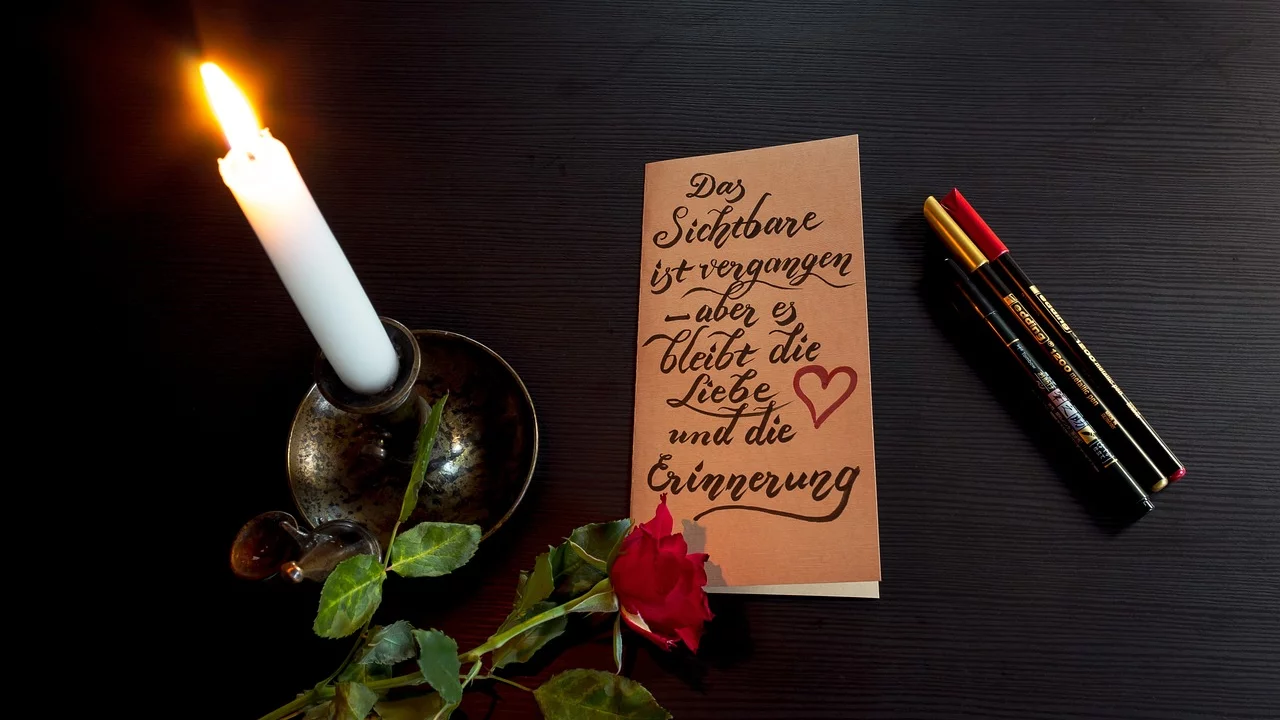 Das
Sichtbare
ist vergangen
– aber es
bleibt die
Liebe
und die
Erinnerung
edding
edding 1200 metallic pen